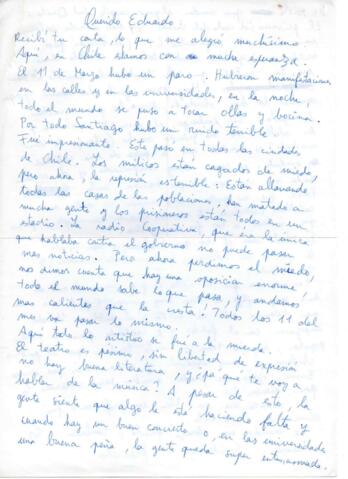 Querido Eduardo:
Recibí tu carta, lo que me alegró muchísimo.
Aquí, en Chile estamos con mucha esperanza.
El 11 de Marzo hubo un paro. Hubieron manifestaciones
en las calles y en las universidades, en la noche,
todo el mundo se puso a tocar ollas y bocina.
Por todo Santiago hubo un ruido terrible.
Fué impresionante. Esto pasó en todas las ciudades
de Chile. Los milicos están cagados de miedo,
pero ahora, la represión es terrible: Están allanando
todas las casas de las poblaciones, han matado a
mucha gente y los prisioneros están todos en un
estadio. La radio Cooperativa, que era la única
que hablaba contra el gobierno no puede pasar
mas noticias. Pero ahora perdimos el miedo,
nos dimos cuenta que hay una oposición enorme,
todo el mundo sabe lo que pasa, y andamos
mas calientes que la cresta! Todos los 11 del
mes va pasar lo mismo.
Aquí todo lo artístico se fue a la mierda.
El teatro es pésimo, sin libertad de expresión
no hay buena literatura, y ¿pa que te voy a
hablar de la música? A pesar de esto la
gente siente que algo le está haciendo falta y
cuando hay un buen concierto o, en las universidades
una buena peña, la gente queda super entusiasmada.